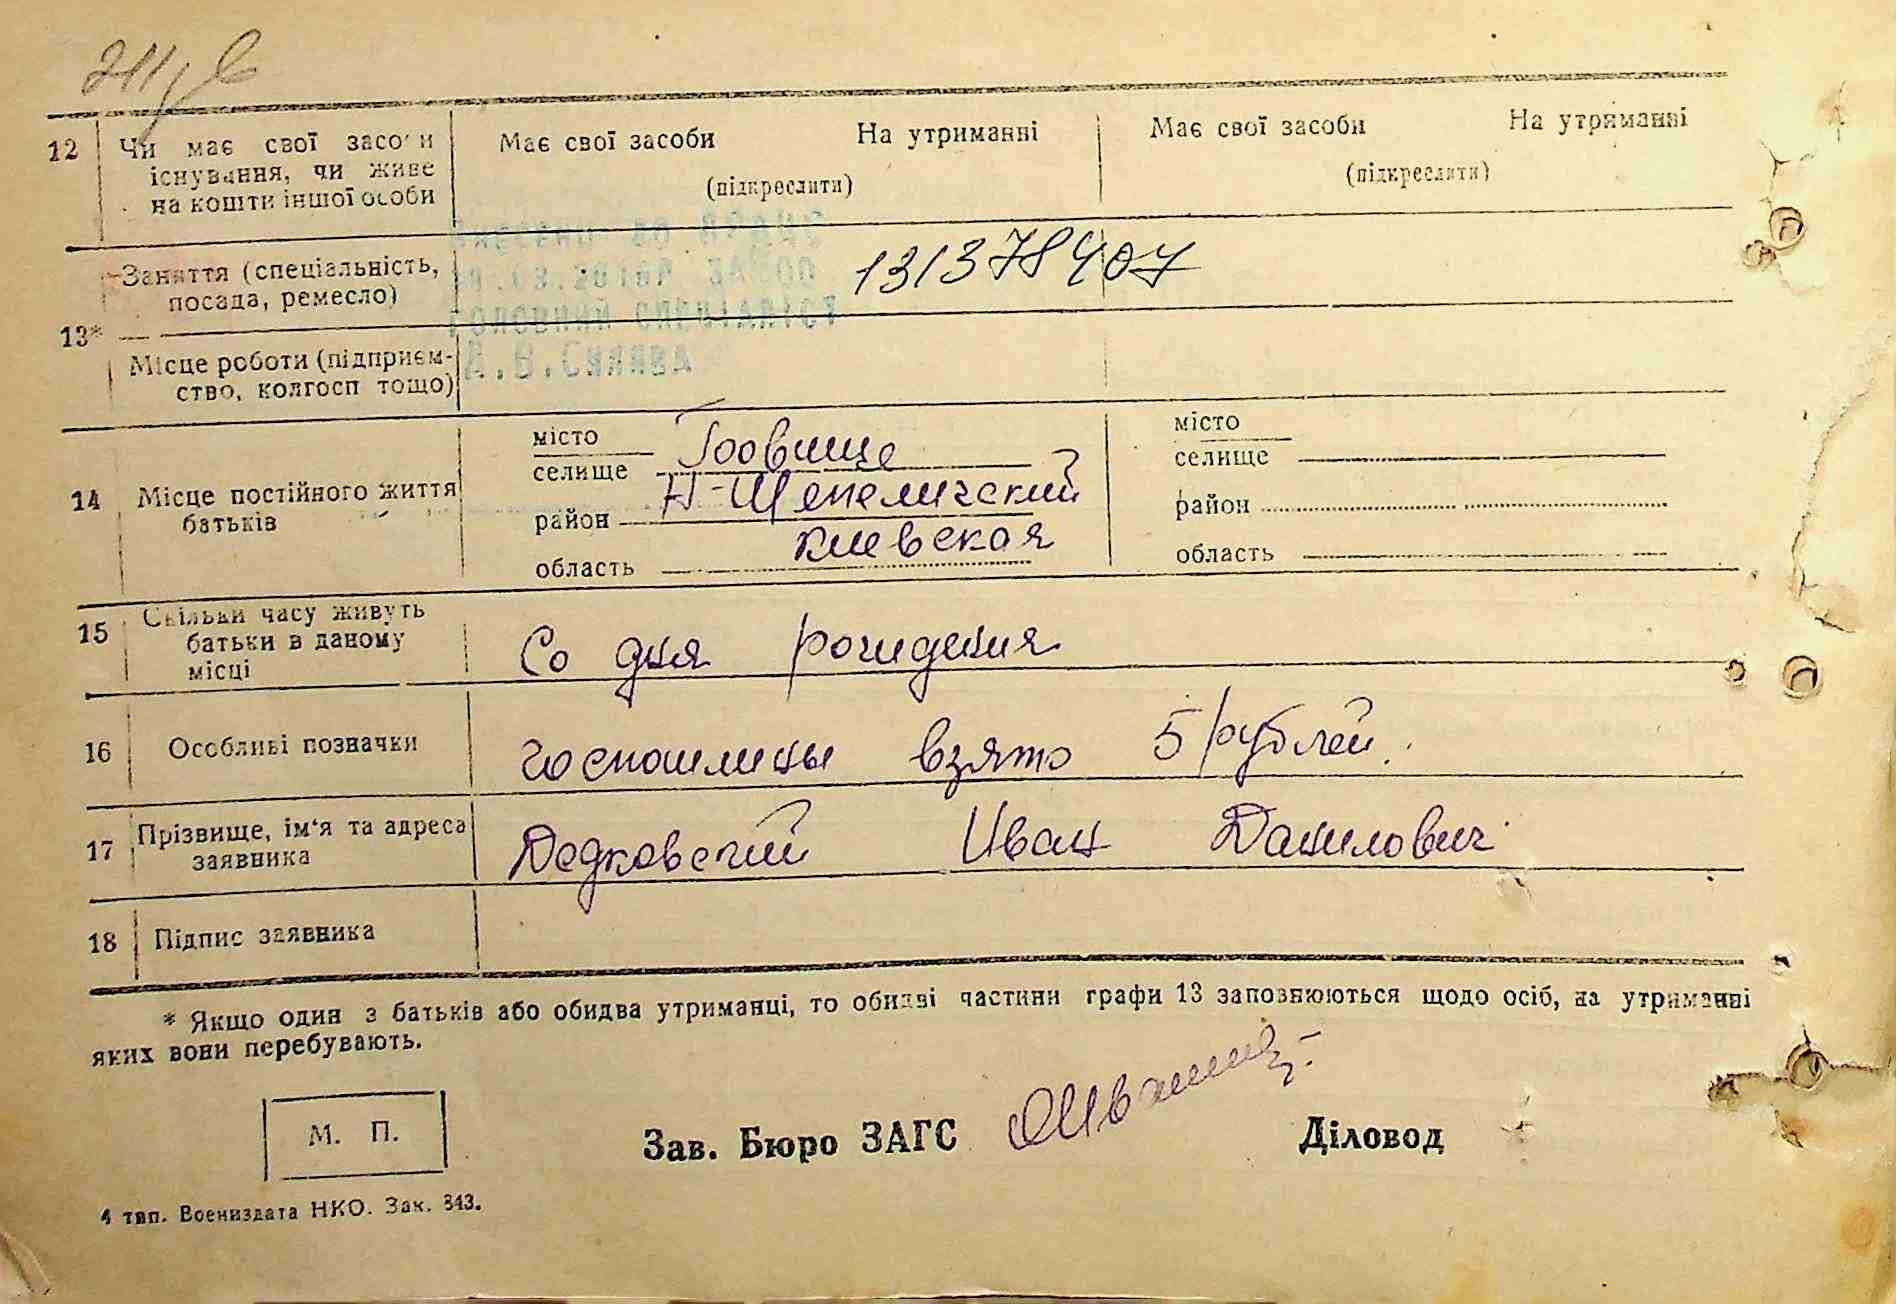 12 Чи має свої засоби Має свої засоби На утриманні Має свої засоби На утриманні
існування, чи живе (підкреслити) (підкреслити)
на кошти іншої особи
Заняття (спеціальність, 131378407
посада, ремесло)
13*
головний спеціаліст
Місце роботи (підприєм-
ство, колгосп тощо)
місто місто
селище селище
14 Місце постійного життя Н-Шепеличский
батьків район район
киевская
область область
15 Скільки часу живуть
батьки в даному Со дня рождения
місці
16 Особливі позначки госпошлицы взято 5 рублей.
17 Прізвище, ім'я та адреса Дедковский Иван Данилович
заявника
18 Підпис заявника
* Якщо один з батьків або обидва утриманці, то обидві частини графи 13 заповнюються щодо осіб, на утриманні
яких вони перебувають.
М. П. Зав. Бюро ЗАГС Діловод
4 тип. Воениздата НКО. Зак. 843.